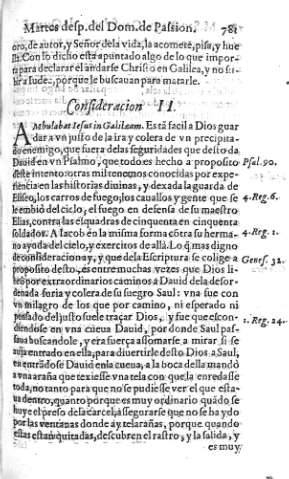 Martes desp. del Dom. de Passion. 781
oro, de autor, y Señor dela vida, la acomete, pisa, y hue
lla. Con lo dicho esta apuntado algo de lo que impor-
ta para declarar el andarse Christo en Galilea, y no su-
bir a Iudea, porque le buscauan para matarle.
Consideracion II.
Ambulabat Iesus in Galilæam. Està facil a Dios guar
dar a vn justo de la ira y colera de vn precipita-
do enemigo, que fuera delas seguridades que desto da
Dauid en vn Psalmo, que todo es hecho a proposito
deste intento: otras mil tenemos conocidas por expe-
riencia en las historias diuinas, y dexada la guarda de
Eliseo, los carros de fuego, los cauallos y gente que se
le embió del cielo, el fuego en defensa de su maestro
Elias, contra las elquadras de cinquenta en cinquenta
soldados. A Iacob en la misma forma cõtra su herma-
no ayuda del cielo, y exercitos de allá. Lo q̃ mas digno
de consideracion ay, y que dela Escriptura se colige a
proposito desto, es entre muchas vezes que Dios li-
bro por extraordinarios caminos a Dauid dela desor-
denada furia y colera de su suegro Saul: vna fue con
vn milagro de los que por camino, ni esperado ni
pensado del justo suele traçar Dios, y fue que escon-
diendose en vna cueua Dauid, por donde Saul pas-
saua buscandole, y era fuerça assomarse a mirar si se
auia entrado en ella, para diuertirle desto Dios a Saul,
en entrãdose Dauid en la cueua, a la boca della mandó
a vna araña que texiesse vna tela con que la enredasse
toda, no tanto para que no se pudiesse ver el que esta-
ua dentro, quanto porque es muy ordinario quãdo se
huye el preso dela carcel, assegurarse que no se ha ydo
por las ventanas donde ay telarañas, porque quando
estas estan quitadas, descubren el rastro, y la salida, y
es muy
Psal. 90.
4. Reg. 6.
4. Reg. 1.
Genes. 32.
1. Reg. 24.